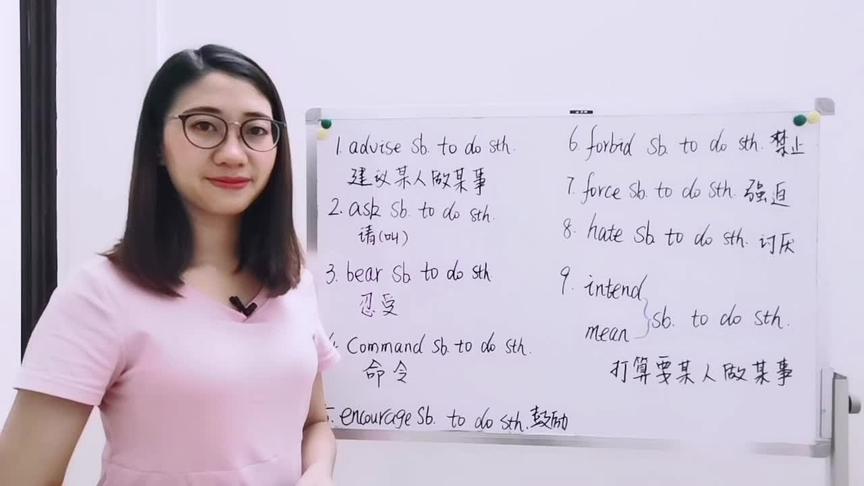 1. advise sb. to do sth.
建议某人做某事
2. ask sb. to do sth.
请(叫)
3. bear sb to do sth
忍受
4. Command sb. to do sth.
命令
5. encourage sb. to do sth. 鼓励
6. forbid sb. to do sth. 禁止
7. force sb. to do sth. 强迫
8. hate sb. to do sth. 讨厌
9. intend
mean
sb. to do sth.
打算要某人做某事